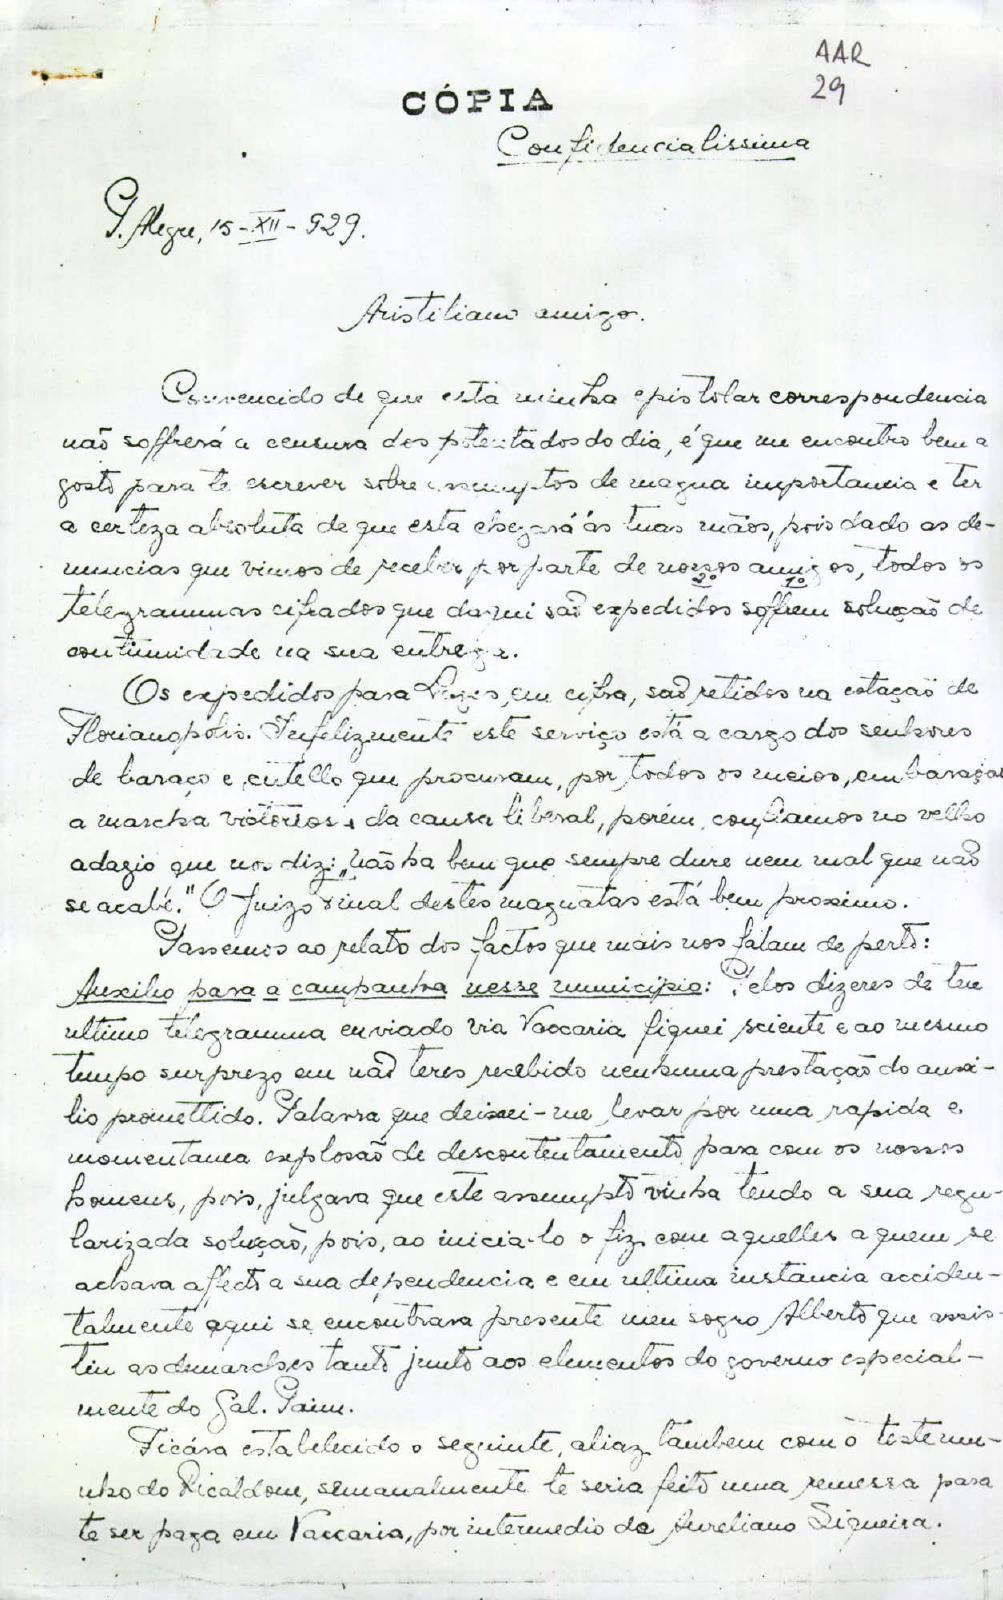 AAR
29
CÓPIA
Confidencialissima
P. Alegre, 15-XII-929.
Aristiliano amigo.
Convencido de que esta minha epistolar correspondencia
não soffrerá a censura dos potentados do dia, é que me encontro bem a
gosto para te escrever sobre assumptos de magna importancia e ter
a certeza absoluta de que esta chegará ás tuas mãos, pois dado as de-
nuncias que vimos de receber por parte de nossos amigos, todos os
telegrammas cifrados que daqui são expedidos 2º soffrem 1º solução de
continuidade na sua entrega.
Os expedidos para Lages, em cifra, são retidos na estação de
Florianopolis. Infelizmente este serviço está a cargo dos senhores
de baraço e cutello que procuram, por todos os meios, embaraçar
a marcha victoriosa da causa liberal, porém, confiamos no velho
adagio que nos diz: "não ha bem que sempre dure nem mal que não
se acabe." O Juizo final destes magnatas está bem proximo.
Passemos ao relato dos factos que mais nos falam de perto:
Auxilio para a campanha nesse municipio: Pelos dizeres de teu
ultimo telegramma enviado via Vaccaria fiquei sciente e ao mesmo
tempo surprezo em não teres recebido nenhuma prestação do auxi-
lio promettido. Palavra que deixei-me levar por uma rapida e
momentanea explosão de descontentamento para com os nossos
homens, pois, julgava que este assumpto vinha tendo a sua regu-
larizada solução, pois, ao inicia-lo o fiz com aquelles a quem se
achava affecto a sua dependencia e em ultima instancia acciden-
talmente aqui se encontrava presente meu sogro Alberto que assis-
tiu as demarches tanto junto aos elementos do governo especial-
mente do Gal. Paim.
Ficára estabelecido o seguinte, aliaz tambem com o testemu-
nho do Ricaldone, semanalmente te seria feito uma remessa para
te ser paga em Vaccaria, por intermedio do Aureliano Siqueira.